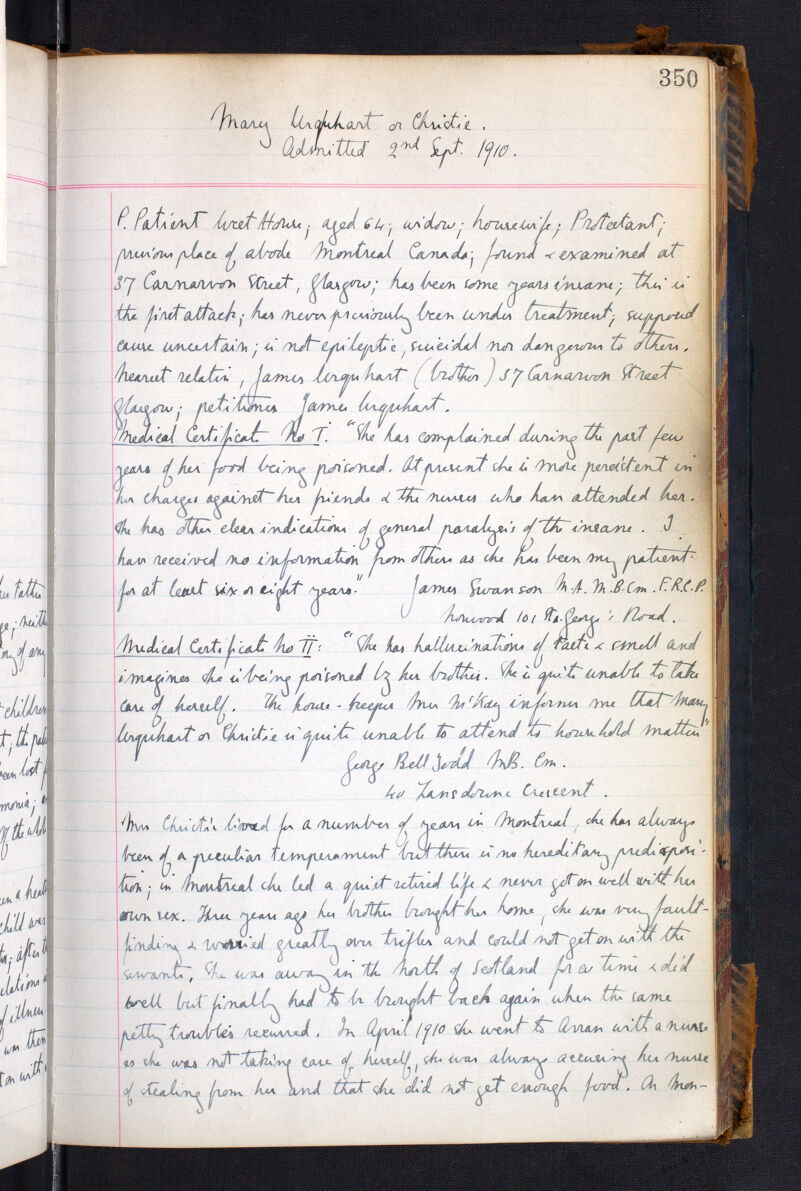 350
Mary Urquhart or Christie.
Admitted 2nd Sept. 1910.
P. Patient West House; aged 64; widow; housewife; Protestant;
previous place of abode Montreal Canada; found & examined at
37 Carnarvon Street, Glasgow; has been some years insane; this is
the first attack; has never previously been under treatment; supposed
cause uncertain; is not epileptic, suicidal nor dangerous to others.
Nearest relatin, James Urquhart (brother) 37 Carnarvon Street
Glasgow; petitioner James Urquhart.
Medical Certificate No I. "She has complained during the past few
years of her food being poisoned. At present she is more persistent in
her charges against her friends & the nurses who have attended her.
She has other clear indications of general paralysis of the insane. I
have received no information from others as she has been my patient
for at least six or eight years." James Swanson M.A. M.B. Cm. F.R.C.P.
Norwood 101 St. George's Road.
Medical Certificate No II: "She has hallucinations of taste & smell and
imagines she is being poisoned by her brother. She is quite unable to take
care of herself. The house-keeper Mrs McKay informs me that Mary
Urquhart or Christie is quite unable to attend to household matters"
George Bell Todd MB. Cm.
40 Lansdowne Crescent.
Mrs Christie lived for a number of years in Montreal, she has always
been of a peculiar temperament but there is no hereditary predisposi-
tion; in Montreal she led a quiet retired life & never got on well with her
own sex. Three years ago her brother brought her home, she was very fault-
finding & worried greatly over trifles and could not get on with the
servants. She was away in the North of Scotland for a time & did
well but finally had to be brought back again when the same
petty troubles recurred. In April 1910 she went to Arran with a nurse
as she was not taking care of herself, she was always accusing her nurse
of stealing from her and that she did not get enough food. On Mon-
her father
neith
of any
children
lost
monia;
child was
after
relations
of illness
was then
on with